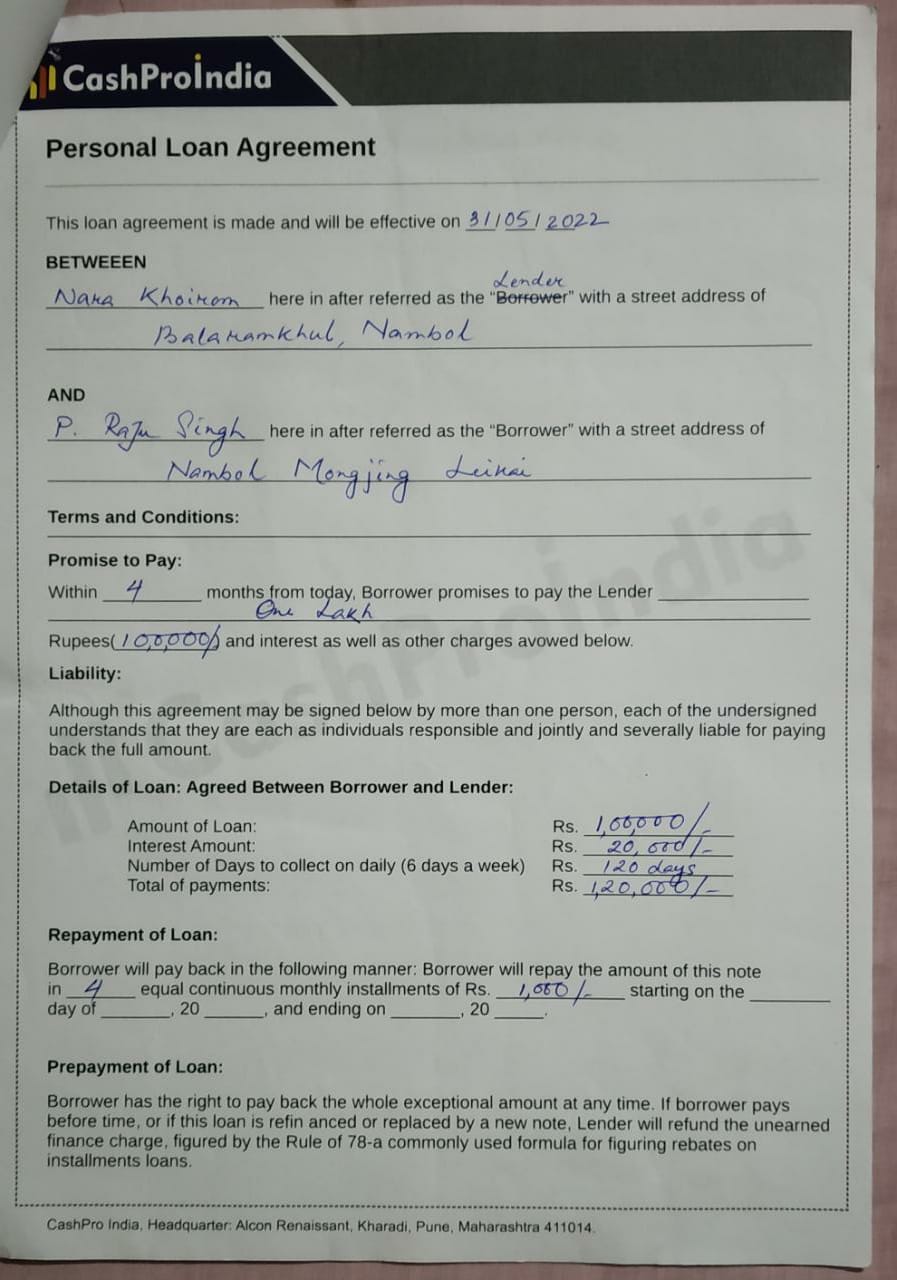 CashProIndia
Personal Loan Agreement
This loan agreement is made and will be effective on 31/05/2022
BETWEEEN
Nara Khoirom here in after referred as the "Borrower" with a street address of
Lender
Balaramkhul, Nambol
AND
P. Raju Singh here in after referred as the "Borrower" with a street address of
Nambol Mongjing Leikai
Terms and Conditions:
Promise to Pay:
Within 4 months from today, Borrower promises to pay the Lender
One Lakh
Rupees(1,00,000/-) and interest as well as other charges avowed below.
Liability:
Although this agreement may be signed below by more than one person, each of the undersigned
understands that they are each as individuals responsible and jointly and severally liable for paying
back the full amount.
Details of Loan: Agreed Between Borrower and Lender:
Amount of Loan: Rs. 1,00,000/-
Interest Amount: Rs. 20,000/-
Number of Days to collect on daily (6 days a week) Rs. 120 days
Total of payments: Rs. 1,20,000/-
Repayment of Loan:
Borrower will pay back in the following manner: Borrower will repay the amount of this note
in 4 equal continuous monthly installments of Rs. 1,000/- starting on the
day of , 20 , and ending on , 20 .
Prepayment of Loan:
Borrower has the right to pay back the whole exceptional amount at any time. If borrower pays
before time, or if this loan is refin anced or replaced by a new note, Lender will refund the unearned
finance charge, figured by the Rule of 78-a commonly used formula for figuring rebates on
installments loans.
CashPro India. Headquarter: Alcon Renaissant, Kharadi, Pune, Maharashtra 411014.